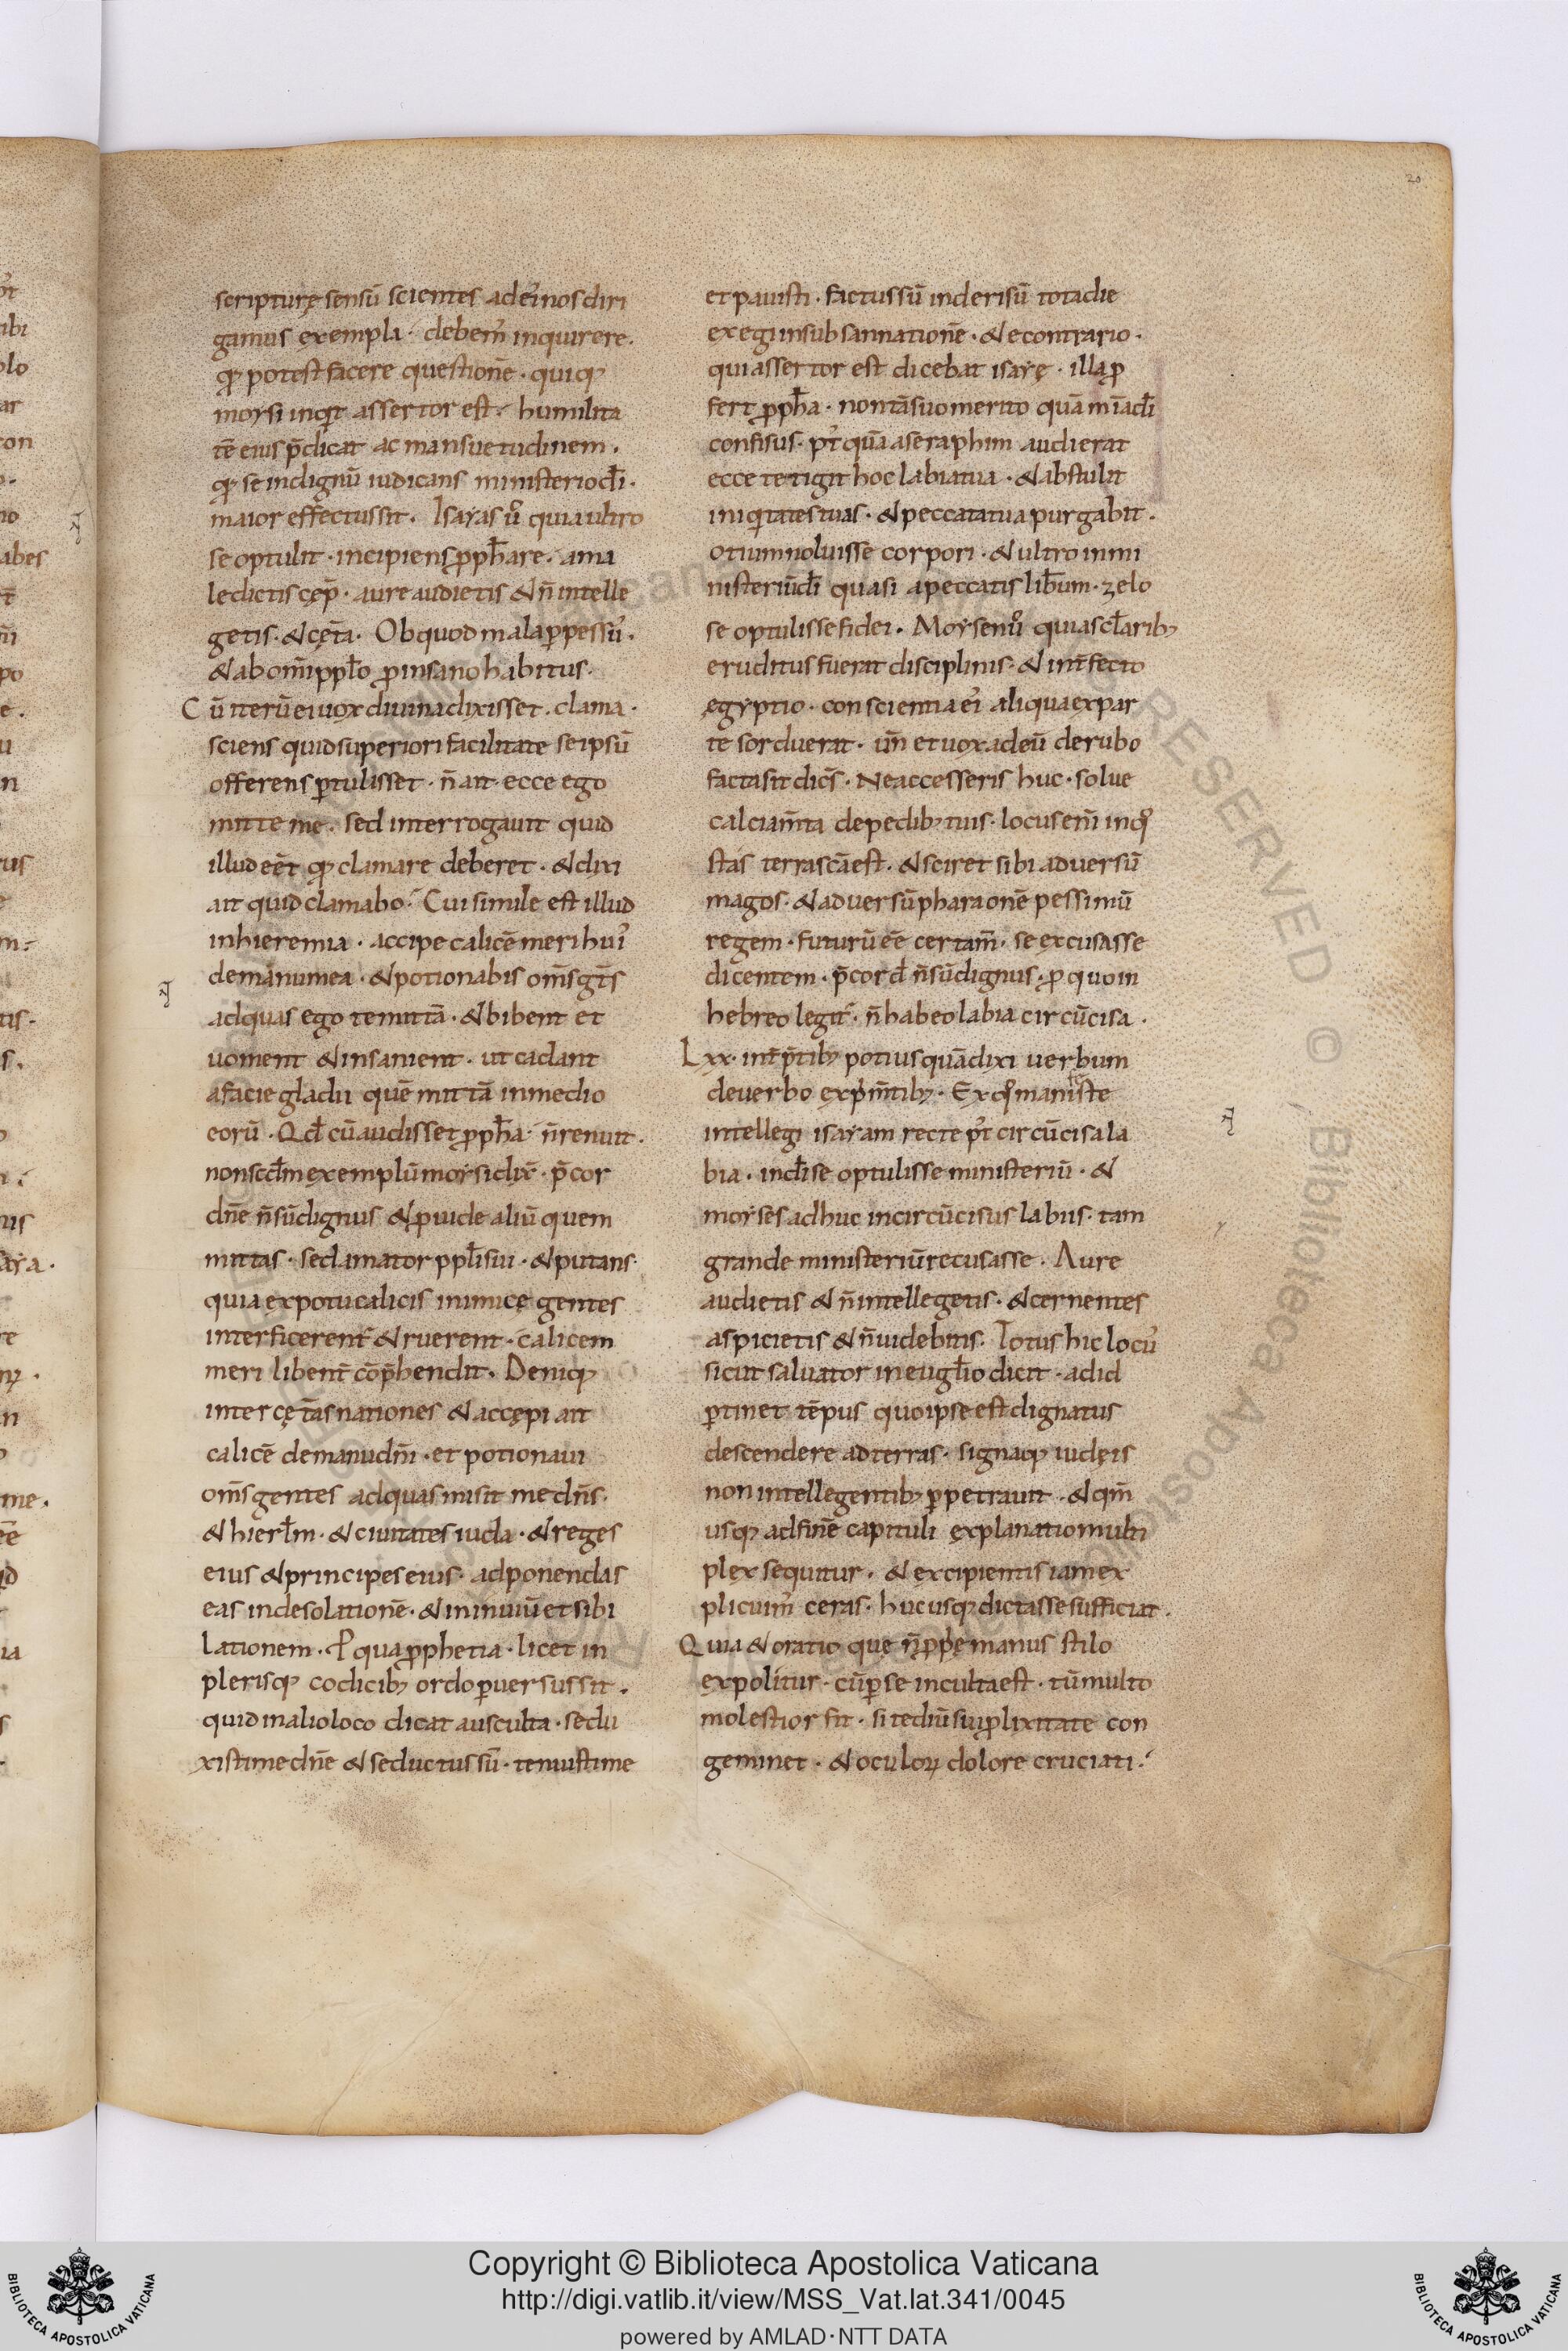 20
scripturę sensū scientes ad eı̓ nos diri
gamus exempla · debem̓ inquirere.
qꝫ potest facere questionē · qui qꝫ
moysi inqt̄ assertor est · humilita
tē eius p̄dicat ac mansuetudinem ·
qꝫ se indignū iudicans ministerio dı̄ ·
maior effectus sit · Isaẏas ů quia ultro
se optulit · incipiens ꝓph̄are · ama
ledictis cęp̄ · aure audietis & n̄ intelle
getis · & cęt̄a · Ob quod mala ꝑpessu᷒ ·
& ab om̄i ppl̄o ꝓ insano habitus ·
Cū iterū ei uox diuina dixisset · clama ·
sciens quid superiori facilitate se ipsū
offerens ꝑtulisset · n̄ ait · ecce ego
mitte me · sed interrogauit quid
illud eēt qꝫ clamare deberet · & dixi
ait quid clamabo · Cui simile est illud
in hieremia · accipe calicē meri hui᷒
de manu mea · & potionabis om̄s gt̄s
ad quas ego te mittā · & bibent et
uoment & insanient · ut cadant
a facie gladii quē mittā in medio
eorū · Qđ cū audisset ꝓph̄a · n̄ renuit ·
non scđm exemplū moysi dix̄ · p̄cor
dn̄e n̄ sū dignus & ꝓuide aliū quem
mittas · sed amator ppl̄i sui · & putans ·
quia ex potu calicis inimicę gentes
interficerent̄ & ruerent · calicem
meri libent̄ cōp̄hendit · Deniqꝫ
inter cęt̄as nationes & accępi ait
calicē de manu dn̄i · et potionaui
om̄s gentes ad quas misit me dn̄s ·
& hierl̄m · & ciuitates iuda · & reges
eius & principes eius · ad ponendas
eas in desolationē · & in inuiū et sibi
lationem · P̄ qua ꝓphetia · licet in
plerisqꝫ codicibꝫ ordo ꝑuersus sit ·
quid in alio loco dicat ausculta · sedu
xisti me dn̄e & seductus sū · tenuisti me
et pauisti · factus sū in derisū tota die
exegi in subsannationē · & econtrario ·
qui assertor est dicebat isaẏę · illa ꝓ
fert ꝓph̄a · non tā suo merito quā mı̄a dı̄
confisus · pt̓ quā a seraphim audierat
ecce tetigit hoc labia tua · & abstulit
iniqtates tuas · & peccata tua purgabit ·
otium noluisse corpori · & ultro in mi
nisteriū dı̄ quasi a peccatis lib̄um · zelo
se optulisse fidei · Moẏsen ů quia sc̄laribꝫ
eruditus fuerat disciplinis · & int̄fecto
egyptio · conscientia eı̓ aliqua ex par
te sorduerat · un̄ et uox ad eū de rubo
facta sit dics̄ · Ne accesseris huc · solue
calciam̄ta de pedibꝫ tuis · locus enī inqͦ
stas terra sc̄a est · & sciret sibi aduersū
magos · & aduersū pharaonē pessimū
regem · futurū eē certam̄ · se excusasse
dicentem · p̄cor d̄ n̄ sū dignus · ꝓ quo in
hebreo legit̄ · n̄ habeo labia circūcisa ·
Lxx · int̄p̄tibꝫ potius quā dixi uerbum
de uerbo exp̄m̄tibꝫ · Ex qͦ manifeste
intellegi isaẏam recte pt̓ circūcisa la
bia · in dı̄ se optulisse ministeriū · &
moẏses adhuc incircūcisus labiis · tam
grande ministeriū recusasse · Aure
audietis & n̄ intellegetis · & cernentes
aspicietis & n̄ uidebitis · Totus hic locu᷒
sicut saluator in eugl̄io dicit · ad id
ꝑtinet tēpus quo ipse est dignatus
descendere ad terras · signaqꝫ iudęis
non intellegentibꝫ ꝑpetrauit · & qm̄
usqꝫ ad finē capituli explanatio multi
plex sequitur · & excipientis iam ex
plicuim̓ ceras · hucusqꝫ dictasse sufficiat ·
Quia & oratio quę n̄ ꝓpę manus stilo
expolitur · cū ꝑ se inculta est · tū multo
molestior fit · si tediū sui ꝓlixitate con
geminet · & oculoꝝ dolore cruciati ·
Copyright © Biblioteca Apostolica Vaticana
http://digi.vatlib.it/view/MSS_Vat.lat.341/0045
powered by AMLAD·NTT DATA
BIBLIOTECA APOSTOLICA VATICANA
BIBLIOTECA APOSTOLICA VATICANA